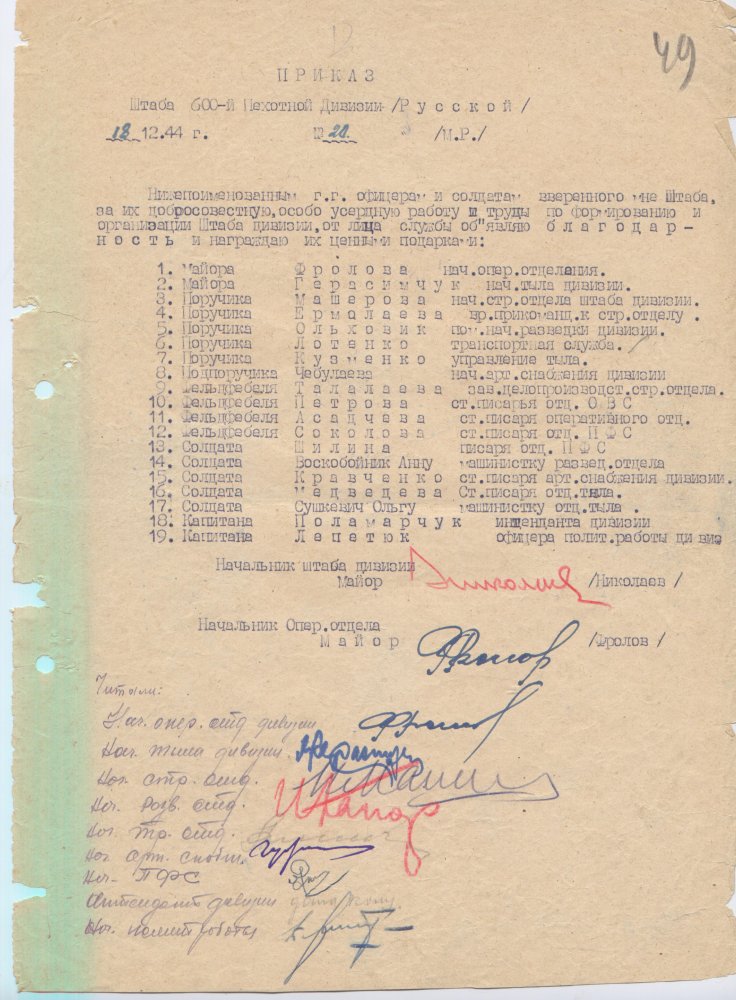 49
П Р И К А З
Штаба 600-й Пехотной Дивизии /Р у с с к о й /
18.12.44 г. № 20. /М.Р./
Нижепоименованным г.г. офицерам и солдатам вверенного мне Штаба,
за их добросовестную,особо усердную работу и труды по формированию и
организации Штаба дивизии,от лица службы об"являю б л а г о д а р -
н о с т ь и награждаю их ценными подарками:
1. Майора Ф р о л о в а нач.опер.отделания.
2. Майора Г е р а с и м ч у к нач.тыла дивизии.
3. Поручика М а ш е р о в а нач.стр.отдела штаба дивизии.
4. Поручика Е р м о л а е в а вр.прикоманд.к стр.отделу .
5. Поручика О л ь х о в и к пом.нач.разведки дивизии.
6. Поручика Л о т е н к о транспортная служба.
7. Поручика К у з м е н к о управление тыла.
8. Подпоручика Чебулаева нач.арт.снабжения дивизии
9. Фельдфебеля Т а л а л а е в а зав.делопроизводст.стр.отдела.
10. Фельдфебеля П е т р о в а ст.писарья отд. О В С
11. Фельдфебеля А с а д ч е в а ст.писаря оперативного отд.
12. Фельдфебеля С о к о л о в а ст.писаря отд. П Ф С
13. Солдата Ш и л и н а писаря отд. П Ф С
14. Солдата Воскобойник Анну машинистку развед.отдела
15. Солдата К р а в ч е н к о ст.писаря арт.снабжения дивизии.
16. Солдата М е д в е д е в а Ст.писаря отд.тяла.
17. Солдата Сушкевич Ольгу машинистку отд.тыла .
18. Капитана П о л а м а р ч у к интенданта дивизии
19. Капитана Л е п е т ю к офицера полит.работы ди виз
Начальник штаба дивизии
Майор Николаев /Николаев /
Начальник Опер.отдела
М а й о р Фролов /Фролов /
Читали:
Нач. опер. отд дивизии
Нач. тыла дивизии
Нач. стр. отд.
Нач. разв. отд.
Нач. тр. отд.
Нач. арт. снабж.
Нач. ПФС
Интендант дивизии
Нач. полит работы